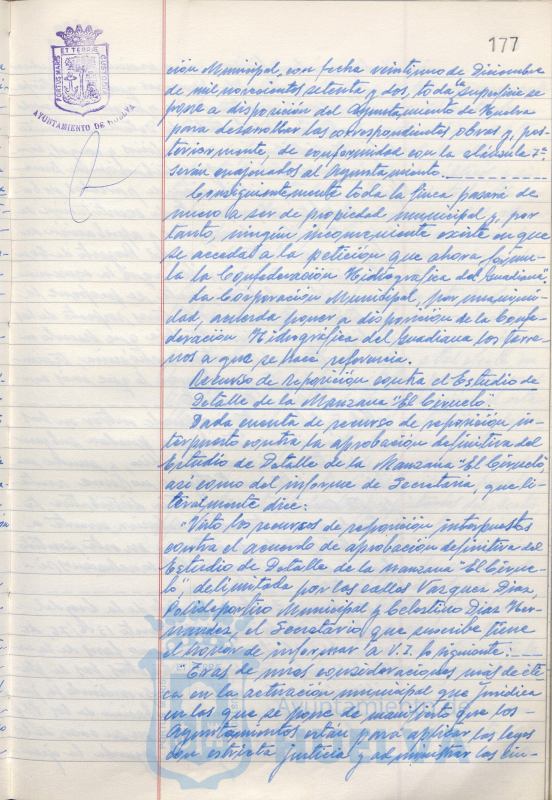 177
PORTUS MARIS ET TERRAE CUSTODIA
AYUNTAMIENTO DE HUELVA
ción Municipal, con fecha veintiuno de Diciembre
de mil novecientos setenta y dos, toda la superficie se
pone a disposición del Ayuntamiento de Huelva
para desarrollar las correspondientes obras y, pos-
teriormente, de conformidad con la cláusula 7ª
serán enajenados al Ayuntamiento.
Consiguientemente toda la finca pasará de
nuevo a ser de propiedad municipal y, por
tanto, ningún inconveniente existe en que
se acceda a la petición que ahora formu-
la la Confederación Hidrográfica del Guadiana.
La Corporación Municipal, por unanimi-
dad, acuerda poner a disposición de la Confe-
deración Hidrográfica del Guadiana los terre-
nos a que se hace referencia.
Recurso de reposición contra el Estudio de
Detalle de la Manzana "El Ciruelo".
Dada cuenta de recurso de reposición in-
terpuesto contra la aprobación definitiva del
Estudio de Detalle de la Manzana "El Ciruelo",
así como del informe de Secretaría, que li-
teralmente dice:
"Visto los recursos de reposición interpuestos
contra el acuerdo de aprobación definitiva del
Estudio de Detalle de la manzana "El Cirue-
lo", delimitada por las calles Vazquez Diaz,
Polideportivo Municipal y Celestino Diaz Her-
nandez, el Secretario que suscribe tiene
el honor de informar a V.I. lo siguiente:
Tras de unas consideraciones más de éti-
ca en la actuación municipal que jurídica
en las que se pone de manifiesto que los
Ayuntamientos están para aplicar las leyes
con estricta justicia y administrar los
Ayuntamiento de